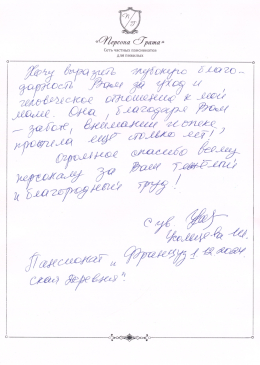 «Персона Грата»
Сеть частных пансионатов
для пожилых
Хочу выразить глубокую благо-
дарность Вам за уход и
человеческое отношение к моей
маме. Она, благодаря Вам
– заботе, вниманию и опеке,
прожила ещё столько лет!
Огромное спасибо всему
персоналу за Ваш тяжёлый
и благородный труд!
С ув
Пансионат „Француз
ская деревня".